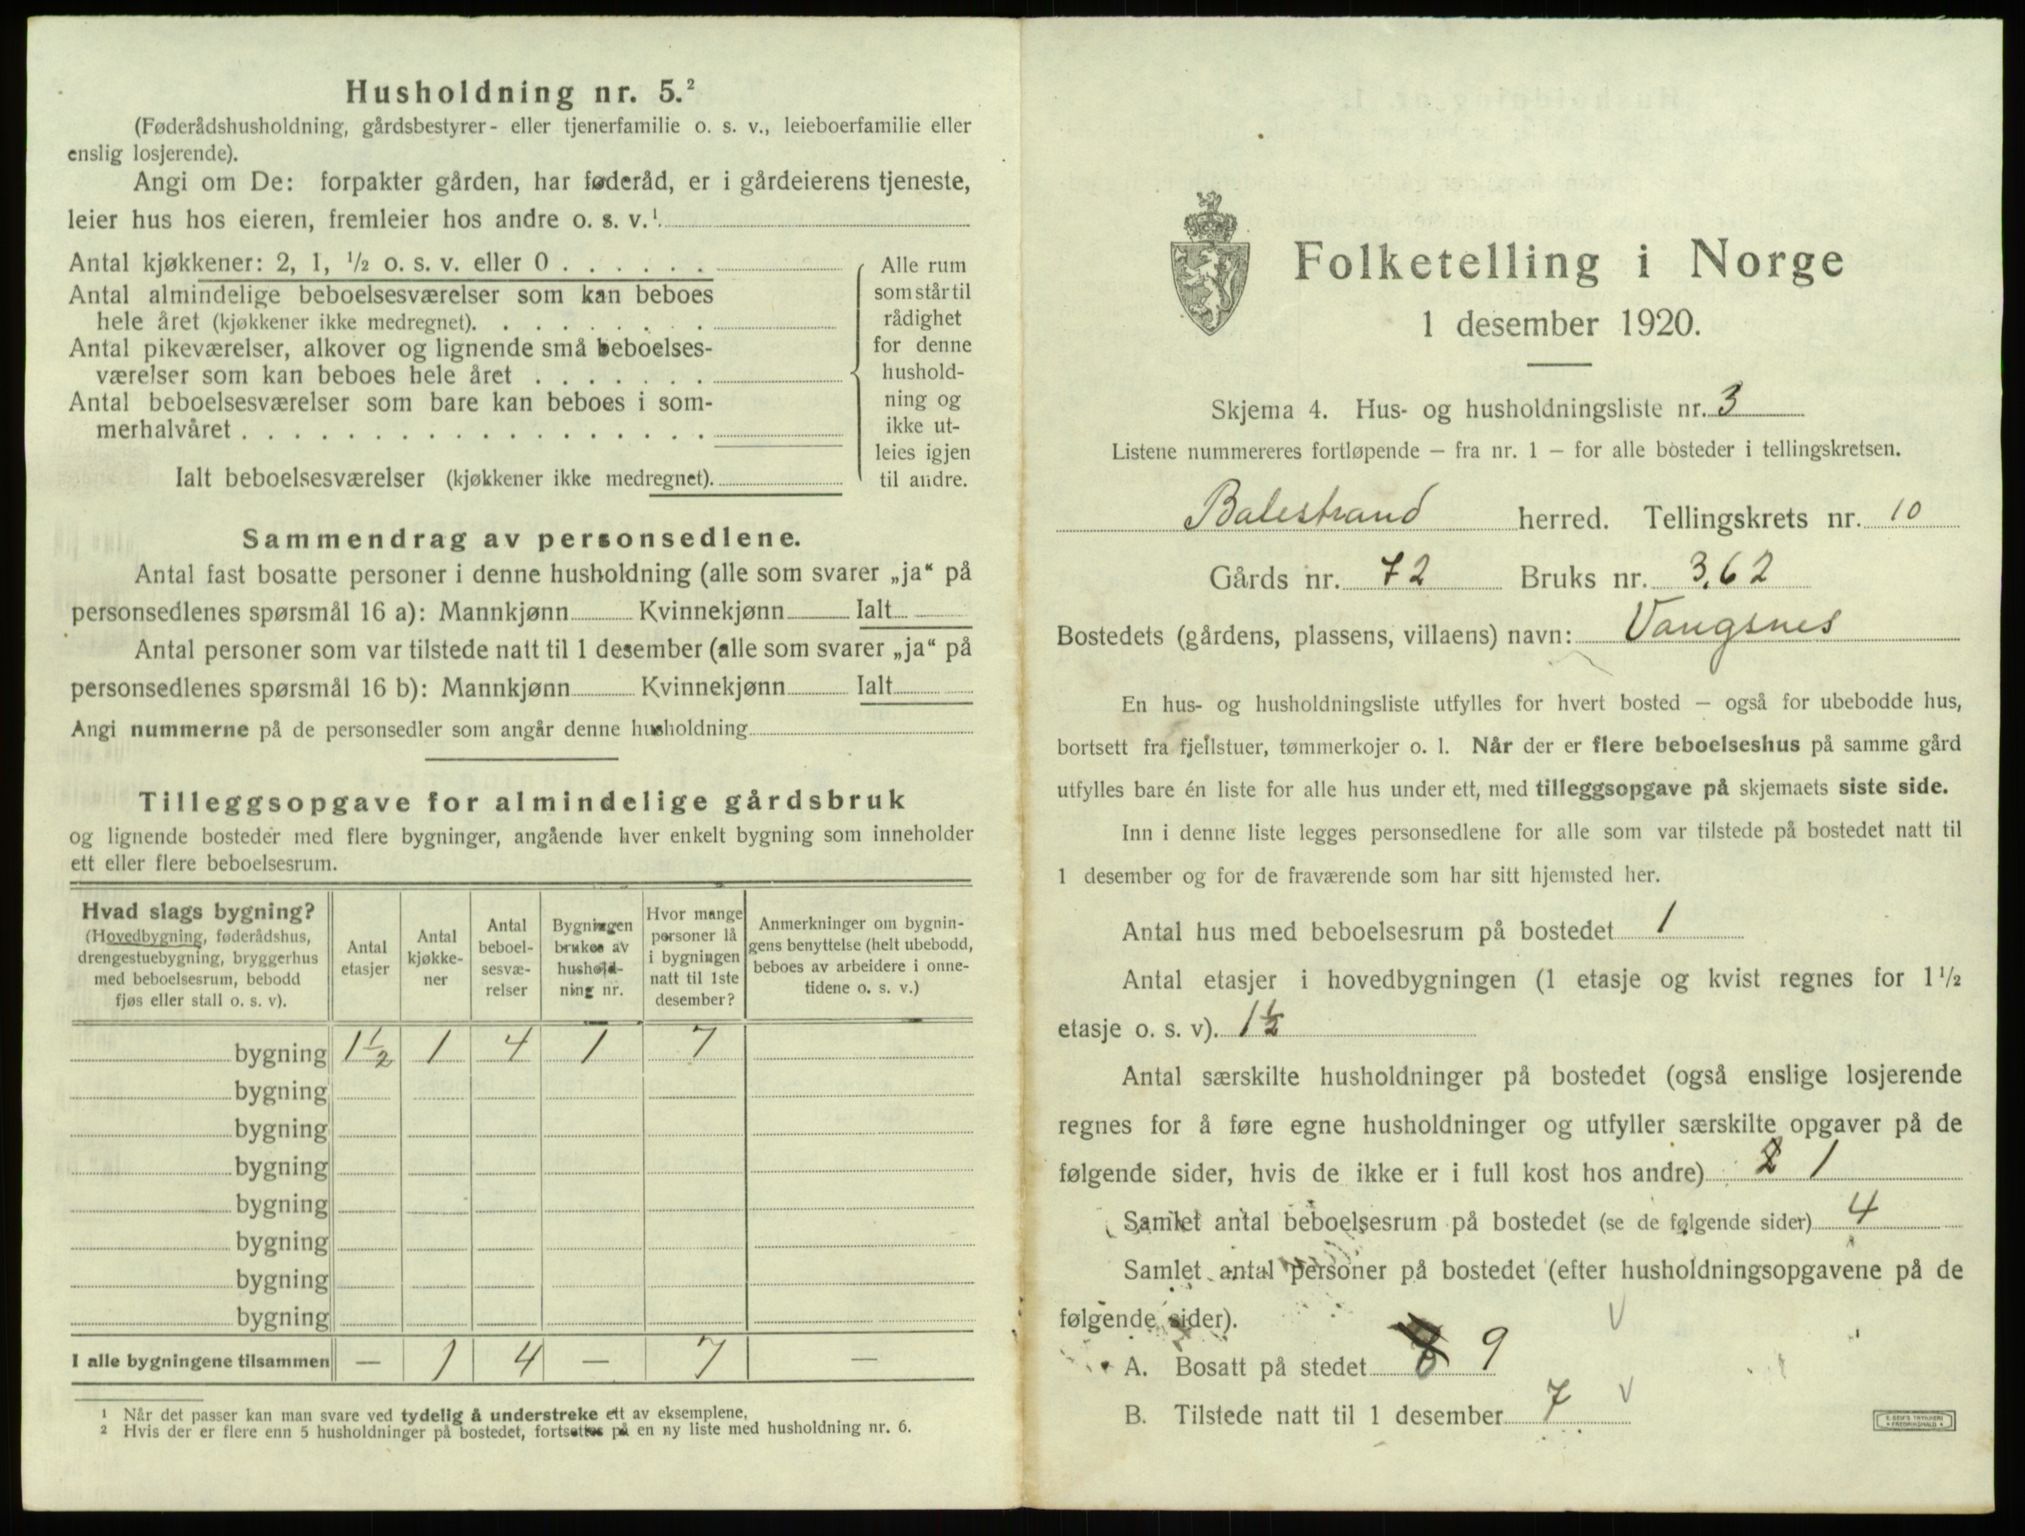 Husholdning nr. 5.²
(Føderådshusholdning, gårdsbestyrer- eller tjenerfamilie o. s. v., leieboerfamilie eller
enslig losjerende).
Angi om De: forpakter gården, har føderåd, er i gårdeierens tjeneste,
leier hus hos eieren, fremleier hos andre o. s. v.¹
Antal kjøkkener: 2, 1, ½ o. s. v. eller 0 . . . . . .
Antal almindelige beboelsesværelser som kan beboes
hele året (kjøkkener ikke medregnet). . . . . . . . .
Antal pikeværelser, alkover og lignende små beboelses-
værelser som kan beboes hele året . . . . . . .
Antal beboelsesværelser som bare kan beboes i som-
merhalvåret . . . . . . . . . . . . . . . . . .
Ialt beboelsesværelser (kjøkkener ikke medregnet).
Alle rum
som står til
rådighet
for denne
hushold-
ning og
ikke ut-
leies igjen
til andre.
Sammendrag av personsedlene.
Antal fast bosatte personer i denne husholdning (alle som svarer „ja“ på
personsedlenes spørsmål 16 a): Mannkjønn Kvinnekjønn Ialt
Antal personer som var tilstede natt til 1 desember (alle som svarer „ja“ på
personsedlenes spørsmål 16 b): Mannkjønn Kvinnekjønn Ialt
Angi nummerne på de personsedler som angår denne husholdning
Tilleggsopgave for almindelige gårdsbruk
og lignende bosteder med flere bygninger, angående hver enkelt bygning som inneholder
ett eller flere beboelsesrum.
Hvad slags bygning?
(Hovedbygning, føderådshus,
drengestuebygning, bryggerhus
med beboelsesrum, bebodd
fjøs eller stall o. s. v).
Antal
etasjer
Antal
kjøkke-
ner
Antal
beboel-
sesvæ-
relser
Bygningen
brukes av
hushold-
ning nr.
Hvor mange
personer lå
i bygningen
natt til 1ste
desember?
Anmerkninger om bygnin-
gens benyttelse (helt ubebodd,
beboes av arbeidere i onne-
tidene o. s. v.)
bygning 1½ 1 4 1 7
bygning
bygning
bygning
bygning
bygning
bygning
bygning
I alle bygningene tilsammen — 1 4 — 7 —
¹ Når det passer kan man svare ved tydelig å understreke ett av eksemplene,
² Hvis der er flere enn 5 husholdninger på bostedet, fortsettes på en ny liste med husholdning nr. 6.
Folketelling i Norge
1 desember 1920.
Skjema 4. Hus- og husholdningsliste nr. 3
Listene nummereres fortløpende — fra nr. 1 — for alle bosteder i tellingskretsen.
Balestrand herred. Tellingskrets nr. 10
Gårds nr. 72 Bruks nr. 3,62
Bostedets (gårdens, plassens, villaens) navn: Vangsnes
En hus- og husholdningsliste utfylles for hvert bosted — også for ubebodde hus,
bortsett fra fjellstuer, tømmerkojer o. l. Når der er flere beboelseshus på samme gård
utfylles bare én liste for alle hus under ett, med tilleggsopgave på skjemaets siste side.
Inn i denne liste legges personsedlene for alle som var tilstede på bostedet natt til
1 desember og for de fraværende som har sitt hjemsted her.
Antal hus med beboelsesrum på bostedet 1
Antal etasjer i hovedbygningen (1 etasje og kvist regnes for 1½
etasje o. s. v). 1½
Antal særskilte husholdninger på bostedet (også enslige losjerende
regnes for å føre egne husholdninger og utfyller særskilte opgaver på de
følgende sider, hvis de ikke er i full kost hos andre) 2 1
Samlet antal beboelsesrum på bostedet (se de følgende sider) 4
Samlet antal personer på bostedet (efter husholdningsopgavene på de
følgende sider).
A. Bosatt på stedet 9
B. Tilstede natt til 1 desember 7